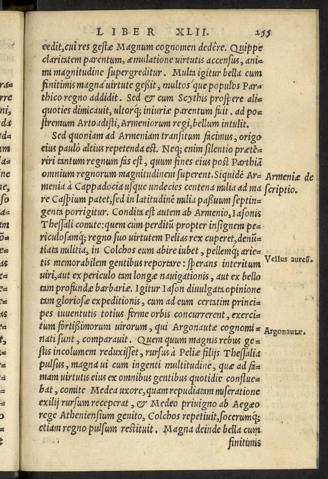 LIBER XLII. 255
cedit, cui res gestæ Magnum cognomen dedêre. Quippe
claritatem parentum, æmulatione uirtutis accensus, ani-
mi magnitudine supergreditur. Multa igitur bella cum
finitimis magna uirtute gessit, multos´que populos Par-
thico regno addidit. Sed & cum Scythis prospere ali-
quoties dimicauit, ultorq; iniuriæ parentum fuit. ad po-
stremum Artoadisti, Armeniorum regi, bellum intulit.
Sed quoniam ad Armeniam transitum facimus, origo
eius paulò altius repetenda est. Neq; enim silentio præte-
riri tantum regnum fas est, quum fines eius post Parthiã
omnium regnorum magnitudinem superent. Siquidẽ Ar-
menia à Cappadocia usque undecies centena milia ad ma
re Caspium patet, sed in latitudinẽ milia passuum septin-
genta porrigitur. Condita est autem ab Armenio, Iasonis
Thessali comite: quem cum perditũ propter insignem pe-
riculosamq; regno suo uirtutem Pelias rex cuperet, denũ-
tiata militia, in Colchos eum abire iubet, pellemq; arie-
tis memorabilem gentibus reportare: sperans interitum
uiri, aut ex periculo tam longæ nauigationis, aut ex bello
tam profundæ barbariæ. Igitur Iason diuulgata opinione
tam gloriosæ expeditionis, cum ad eum certatim princi-
pes iuuentutis totius ferme orbis concurrerent, exerci-
tum fortißimorum uirorum, qui Argonautæ cognomi-
nati sunt, comparauit. Quem quum magnis rebus ge-
stis incolumem reduxisset, rursus à Peliæ filijs Thessalia
pulsus, magna ui cum ingenti multitudine, quæ ad fa-
mam uirtutis eius ex omnibus gentibus quotidie conflue-
bat, comite Medea uxore, quam repudiatam miseratione
exilij rursum receperat, & Medeo priuigno ab Aegæo
rege Atheniensium genito, Colchos repetiuit, socerumq;
etiam regno pulsum restituit. Magna deinde bella cum
finitimis
Armeniæ de
scriptio.
Vellus aureũ.
Argonautæ.